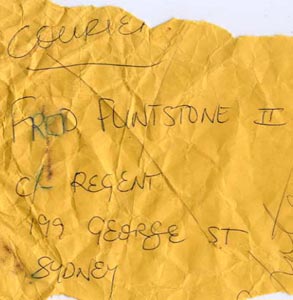 COURIER
FRED FLINTSTONE II
C/ REGENT
199 GEORGE ST
SYDNEY